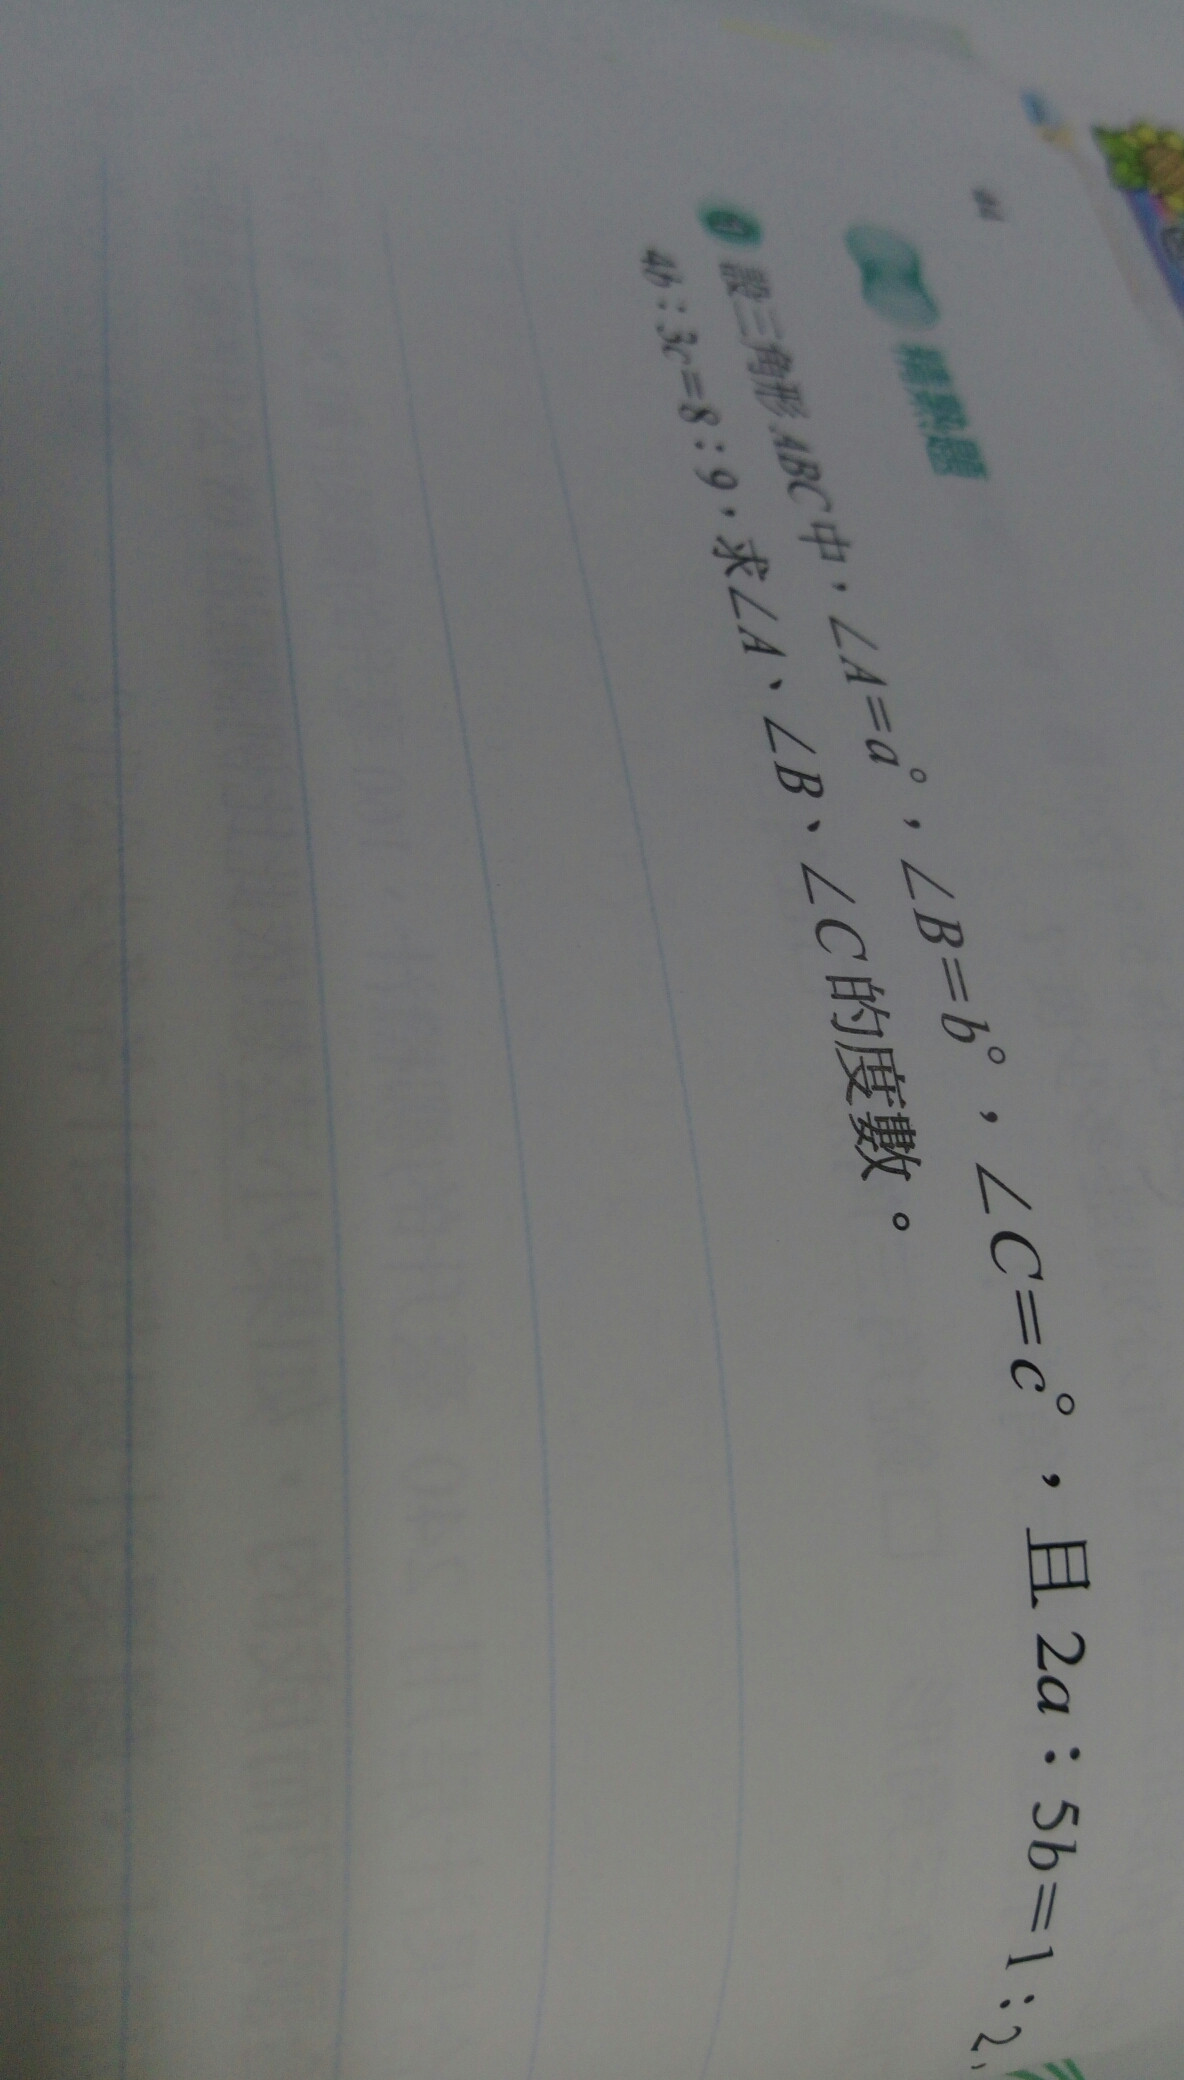 精熟題
設三角形ABC中，∠A=a°，∠B=b°，∠C=c°，且2a：5b=1：2，
4b：3c=8：9，求∠A、∠B、∠C的度數。